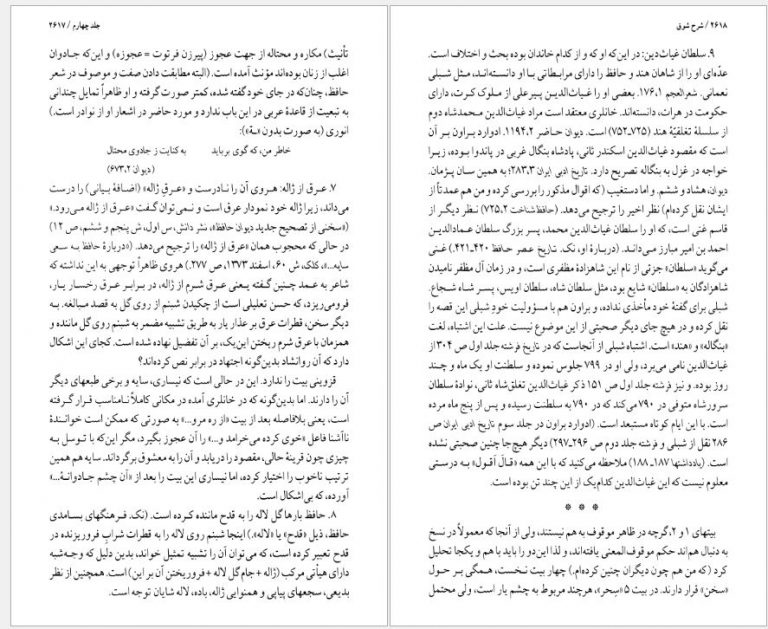 جلد چهارم / ۲۶۱۷
تأنیث) مکاره و محتاله از جهت عجوز (پیرزن فرتوت = عجوزه) و این‌که جادوان
اغلب از زنان بوده‌اند مؤنث آمده است. (البته مطابقت دادن صفت و موصوف در شعر
حافظ، چنان‌که در جای خود گفته شده، کمتر صورت گرفته و او ظاهراً تمایل چندانی
به تبعیت از قاعدهٔ عربی در این باب ندارد و مورد حاضر در اشعار او از نوادر است.)
انوری (به صورت بدون «ـه»):
خاطر من، که گوی برباید به کنایت ز جادوی محتال
(دیوان ۶۷۳،۲)
۷. عـرق از ژاله: هـروی آن را نـادرست و «عـرقِ ژاله» (اضافهٔ بیانی) را درست
می‌داند، زیرا ژاله خود نمودار عرق است و نـمی‌توان گـفت «عـرق از ژاله می‌رود.»
(«سخنی از تصحیح جدید دیوان حافظ»، نشر دانش، س اول، ش پنجم و ششم، ص ۱۲)
در حالی که محجوب همان «عرق از ژاله» را ترجیح می‌دهد. («دربارهٔ حافظ به سعی
سایه...»، کلک، ش ۶۰، اسفند ۱۳۷۳، ص ۲۷۷.) هروی ظاهراً توجهی به این نداشته که
شاعر به عمد چنین گفته یعنی عرق شرم از ژاله، در برابر عرق رخسار یار،
فرومی‌ریزد، که حسن تعلیلی است از چکیدن شبنم از روی گل به قصد مبالغه. به
دیگر سخن، قطرات عرق بر عذار یار به طریق تشبیه مضمر به شبنم روی گل ماننده و
همزمان با عرق شرم ریختن این‌یک، بر آن تفضیل نهاده شده است. کجای این اشکال
دارد که آن روانشاد بدین‌گونه اجتهاد در برابر نص کرده‌اند؟
قزوینی بیت را ندارد. این در حالی است که نیساری، سایه و برخی طبعهای دیگر
آن را دارند. اما بدین‌گونه که در خانلری آمده در مکانی کاملاً نـامناسب قـرار گـرفته
است، یعنی بلافاصله بعد از بیت «از ره مرو...» به صورتی که ممکن است خوانـندهٔ
ناآشنا فاعل «خوی کرده می‌خرامد و...» را آن عجوز بگیرد، مگر این‌که با توسل به
چیزی چون قرینهٔ حالی، مقصود را دریابد و آن را به معشوق برگرداند. سایه هم همین
ترتیب ناخوب را اختیار کرده، اما نیساری این بیت را بعد از «آن چشم جـادوانـه...»
آورده، که بی‌اشکال است.
۸. حافظ بارها گل لاله را به قدح ماننده کـرده است. (نک. فـرهنگهای بسـامدی
حافظ، ذیل «قدح» یا «لاله».) اینجا شبنم روی لاله را به قطرات شرابِ فروریزنده در
قدح تعبیر کرده است، که می‌توان آن را تشبیه تمثیل خواند، بدین دلیل که وجه‌شبه
دارای هیأتی مرکب (ژاله + جام گل لاله + فروریختن آن بر این) است. همچنین از نظر
بدیعی، سجعهای پیاپی و همنوایی ژاله، باده، لاله شایان توجه است.
۲۶۱۸ / شرح شوق
۹. سلطان غیاث‌دین: در این‌که او که و از کدام خاندان بوده بحث و اختلاف است.
عده‌ای او را از شاهان هند و حافظ را دارای مرابطاتی با او دانسته‌انـد، مـثل شـبلی
نعمانی. شعرالعجم ۱۷۶،۱. بعضی او را غیـاث‌الدین پـیرعلی از مـلوک کـرت، دارای
حکومت در هرات، دانسته‌اند. خانلری معتقد است مراد غیاث‌الدین محـمدشاه دوم
از سلسلهٔ تغلقیّهٔ هند (۷۲۵-۷۵۲) است. دیوان حاضر ۱۱۹۴،۲. ادوارد براون بر آن
است که مقصود غیاث‌الدین اسکندر ثانی، پادشاه بنگال غربی در پاندوا بوده، زیـرا
خواجه در غزل به بنگاله تصریح دارد. تاریخ ادبی ایران ۲۸۳،۳؛ به همین سان پـژمان.
دیوان، هشتاد و ششم. و اما دستغیب (که اقوال مذکور را بررسی کرده و من هم عمدتاً از
ایشان نقل کرده‌ام) نظر اخیر را ترجیح می‌دهد. (حافظ‌شناخت ۷۲۵،۲) نظر دیگر از
قاسم غنی است، که او را سلطان غیاث‌الدین محمد، پسر بزرگ سلطان عمادالدین
احمد بن امیر مبارز می‌داند. (دربارهٔ او، نک. تاریخ عصر حافظ ۴۲۰-۴۲۱.) غنی
می‌گوید «سلطان» جزئی از نام این شاهزادهٔ مظفری است، و در زمان آل مظفر نامیدن
شاهزادگان به «سلطان» شایع بود، مثل سلطان شاه، سلطان اویس، پسر شاه شـجاع.
شبلی برای گفتهٔ خود مأخذی نداده، و براون هم با مسؤولیت خودِ شبلی این قصه را
نقل کرده و در هیچ جای دیگر صحبتی از این موضوع نیست. علت این اشتباه، لغت
«بنگاله» و «هند» است. اشتباه شبلی از آنجاست که در تاریخ فرشته جلد اول ص ۳۰۴ از
غیاث‌الدین نامی می‌برد، ولی او در ۷۹۹ جلوس نموده و سلطنت او یک ماه و چـند
روز بوده. و نیز فرشته جلد اول ص ۱۵۱ ذکر غیاث‌الدین تغلق‌شاه ثانی، نوادهٔ سلطان
سرورشاه متوفی در ۷۹۰ می‌کند که در ۷۹۰ به سلطنت رسیده و پس از پنج ماه مرده
است. با این ایام کوتاه مستبعد است. (ادوارد براون در جلد سوم تاریخ ادبی ایران ص
۲۸۶ نقل از شبلی و فرشته جلد دوم ص ۲۹۶-۲۹۷) دیگر هیچ‌جا چنین صحبتی نشده
است. (یادداشتها ۱۸۷-۱۸۸) ملاحظه می‌کنید که با این همه «قـالَ اَقـول» بـه درسـتی
معلوم نیست که این غیاث‌الدین کدام‌یک از این چند تن بوده است.
* * *
بیتهای ۱ و ۲، گرچه در ظاهر موقوف به هم نیستند، ولی از آنجا که معمولاً در نسخ
به دنبال هم‌اند حکم موقوف‌المعنی یافته‌اند، و لذا این‌دو را باید با هم و یکجا تحلیل
کرد (که من هم چون دیگران چنین کرده‌ام.) چهار بیت نخست، همگی بـر حـول
«سخن» قرار دارند. در بیت ۵ «سِحر»، هرچند مربوط به چشم یار است، ولی محتمل